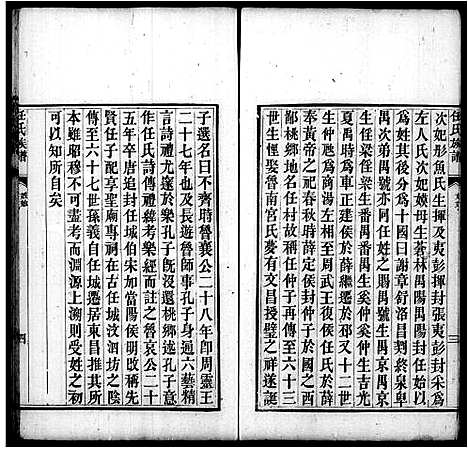 次妃彤魚氏生揮及夷彭揮封張夷彭封采爲
左人氏次妃嫫母生蒼林禺陽禺陽封任始以
爲姓其後分爲十國曰謝章舒洛昌終泉卑
禺次弟禺號亦阿任姓之賜禺號生禺京禺京
生任梁任梁生番禺番禺生奚仲奚仲生吉光
夏禹時爲車正建侯於薛繼遷於邳又十二世
生仲虺爲商湯左相至周武王復侯任氏於薛
奉黃帝之祀春秋時薛定侯封仲子於國之西
鄙桃鄉地近魯境以任爲氏自仲子傳至六十三
世生恆爲魯南宮氏夢有文昌授璧之祥遂誕
子選名曰不齊時魯襄公二十八年卽周靈王
二十七年也及長遊於魯師事孔子身通六藝精
言詩禮尤邃於樂孔子旣沒還桃鄉述孔子意
作任氏詩傳禮緯考樂經而註之魯哀公二十
五年卒唐追封任城伯宋加當陽侯明改稱先
賢任子配享聖廟專祠在古任城汶泗坊之陰
傳至六十七世孫義自任城遷居東昌推其所
本雖昭穆不可盡考而淵源上溯則受姓之初
可以知所自矣
任氏族譜
任氏族譜
三
四